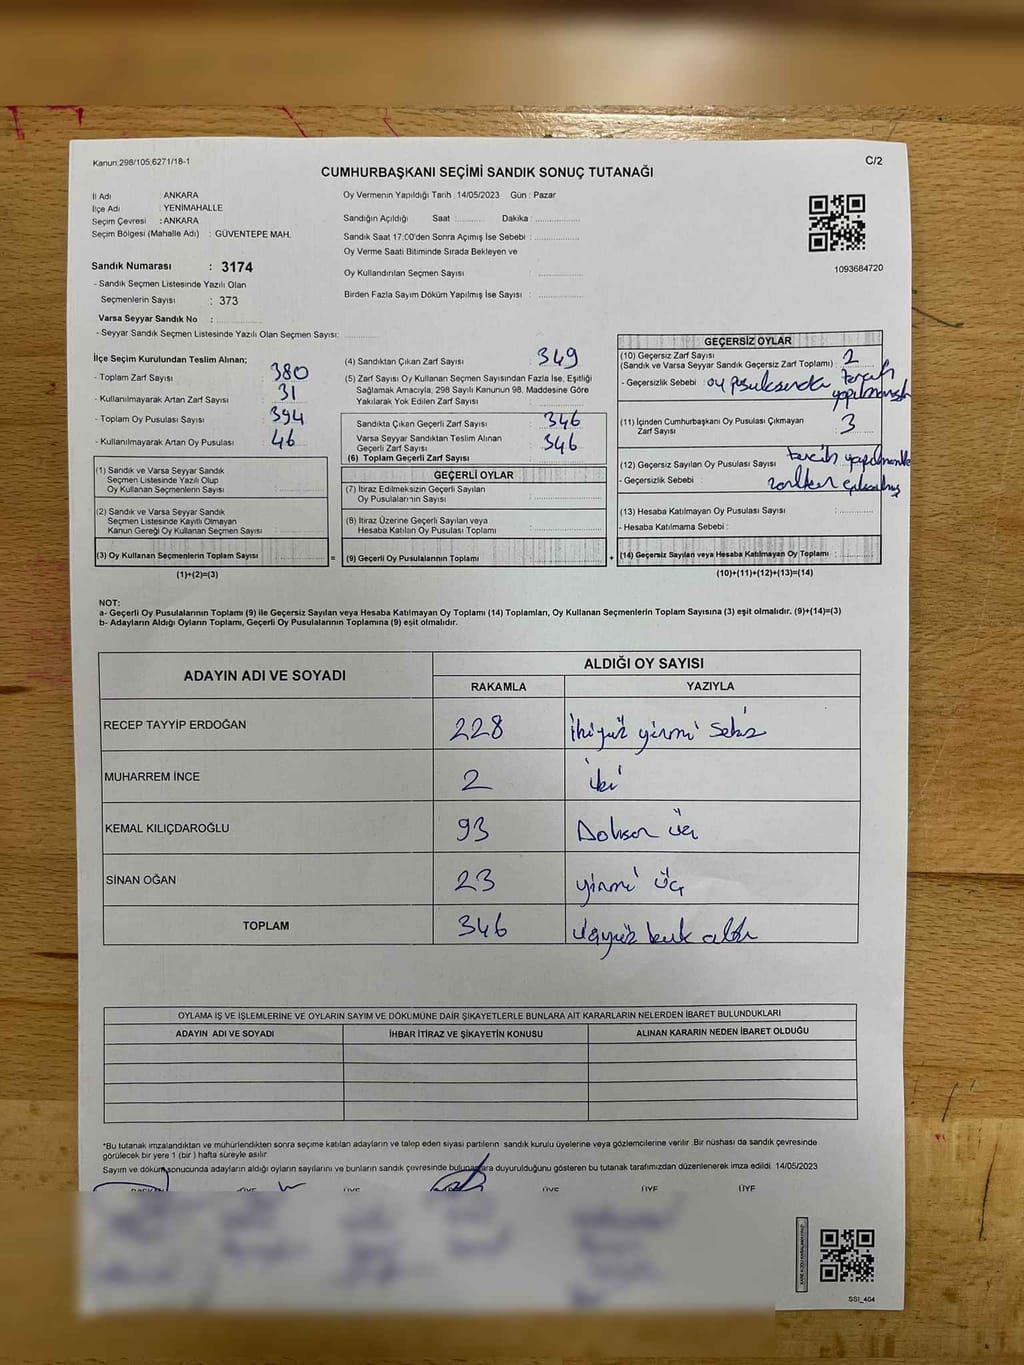 Kanun:298/105;6271/18-1
C/2
CUMHURBAŞKANI SEÇİMİ SANDIK SONUÇ TUTANAĞI
İl Adı : ANKARA
İlçe Adı : YENİMAHALLE
Seçim Çevresi : ANKARA
Seçim Bölgesi (Mahalle Adı) : GÜVENTEPE MAH.
Sandık Numarası : 3174
- Sandık Seçmen Listesinde Yazılı Olan
Seçmenlerin Sayısı : 373
Varsa Seyyar Sandık No :
- Seyyar Sandık Seçmen Listesinde Yazılı Olan Seçmen Sayısı:
Oy Vermenin Yapıldığı Tarih :14/05/2023 Gün : Pazar
Sandığın Açıldığı Saat : Dakika :
Sandık Saat 17:00'den Sonra Açımış İse Sebebi :
Oy Verme Saati Bitiminde Sırada Bekleyen ve
Oy Kullandırılan Seçmen Sayısı :
Birden Fazla Sayım Döküm Yapılmış İse Sayısı :
1093684720
İlçe Seçim Kurulundan Teslim Alınan;
- Toplam Zarf Sayısı : 380
- Kullanılmayarak Artan Zarf Sayısı : 31
- Toplam Oy Pusulası Sayısı : 394
- Kullanılmayarak Artan Oy Pusulası : 46
(1) Sandık ve Varsa Seyyar Sandık
Seçmen Listesinde Yazılı Olup
Oy Kullanan Seçmenlerin Sayısı :
(2) Sandık ve Varsa Seyyar Sandık
Seçmen Listesinde Kayıtlı Olmayan
Kanun Gereği Oy Kullanan Seçmen Sayısı :
(3) Oy Kullanan Seçmenlerin Toplam Sayısı :
(1)+(2)=(3)
(4) Sandıktan Çıkan Zarf Sayısı : 349
(5) Zarf Sayısı Oy Kullanan Seçmen Sayısından Fazla İse, Eşitliği
Sağlamak Amacıyla; 298 Sayılı Kanunun 98. Maddesine Göre
Yakılarak Yok Edilen Zarf Sayısı :
Sandıkta Çıkan Geçerli Zarf Sayısı : 346
Varsa Seyyar Sandıktan Teslim Alınan
Geçerli Zarf Sayısı : 346
(6) Toplam Geçerli Zarf Sayısı :
GEÇERLİ OYLAR
(7) İtiraz Edilmeksizin Geçerli Sayılan
Oy Pusulalarının Sayısı :
(8) İtiraz Üzerine Geçerli Sayılan veya
Hesaba Katılan Oy Pusulası Toplamı :
= (9) Geçerli Oy Pusulalarının Toplamı :
GEÇERSİZ OYLAR
(10) Geçersiz Zarf Sayısı
(Sandık ve Varsa Seyyar Sandık Geçersiz Zarf Toplamı) : 2
- Geçersizlik Sebebi : oy pusulasında tercih
yapılmamış
(11) İçinden Cumhurbaşkanı Oy Pusulası Çıkmayan
Zarf Sayısı : 3
(12) Geçersiz Sayılan Oy Pusulası Sayısı : tercih
- Geçersizlik Sebebi :
(13) Hesaba Katılmayan Oy Pusulası Sayısı :
- Hesaba Katılmama Sebebi :
+ (14) Geçersiz Sayılan veya Hesaba Katılmayan Oy Toplamı :
(10)+(11)+(12)+(13)=(14)
NOT:
a- Geçerli Oy Pusulalarının Toplamı (9) ile Geçersiz Sayılan veya Hesaba Katılmayan Oy Toplamı (14) Toplamları, Oy Kullanan Seçmenlerin Toplam Sayısına (3) eşit olmalıdır. (9)+(14)=(3)
b- Adayların Aldığı Oyların Toplamı, Geçerli Oy Pusulalarının Toplamına (9) eşit olmalıdır.
ADAYIN ADI VE SOYADI
ALDIĞI OY SAYISI
RAKAMLA YAZIYLA
RECEP TAYYİP ERDOĞAN 228 ikiyüz yirmi sekiz
MUHARREM İNCE 2 iki
KEMAL KILIÇDAROĞLU 93 Doksan üç
SİNAN OĞAN 23 yirmi üç
TOPLAM 346 üçyüz kırk altı
OYLAMA İŞ VE İŞLEMLERİNE VE OYLARIN SAYIM VE DÖKÜMÜNE DAİR ŞİKAYETLERLE BUNLARA AİT KARARLARIN NELERDEN İBARET BULUNDUKLARI
ADAYIN ADI VE SOYADI İHBAR İTİRAZ VE ŞİKAYETİN KONUSU ALINAN KARARIN NEDEN İBARET OLDUĞU
*Bu tutanak imzalandıktan ve mühürlendikten sonra seçime katılan adayların ve talep eden siyasi partilerin sandık kurulu üyelerine veya gözlemcilerine verilir .Bir nüshası da sandık çevresinde
görülecek bir yere 1 (bir ) hafta süreyle asılır.
Sayım ve döküm sonucunda adayların aldığı oyların sayılarını ve bunların sandık çevresinde bulunanlara duyurulduğunu gösteren bu tutanak tarafımızdan düzenlenerek imza edildi. 14/05/2023
BAŞKAN ÜYE ÜYE ÜYE ÜYE ÜYE
SSI_404